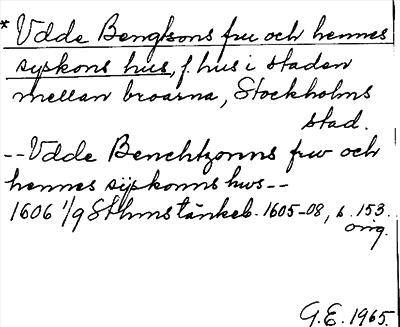 * Udde Bengtsons fru och hennes
syskons hus, f. hus i staden
mellan broarna, Stockholms
stad.
-- Vdde Benchtzonns frw och
hennes sÿskonns hws --
1606 1/9 Sthms tänkeb. 1605-08, s. 153.
orig.
G.E. 1965.